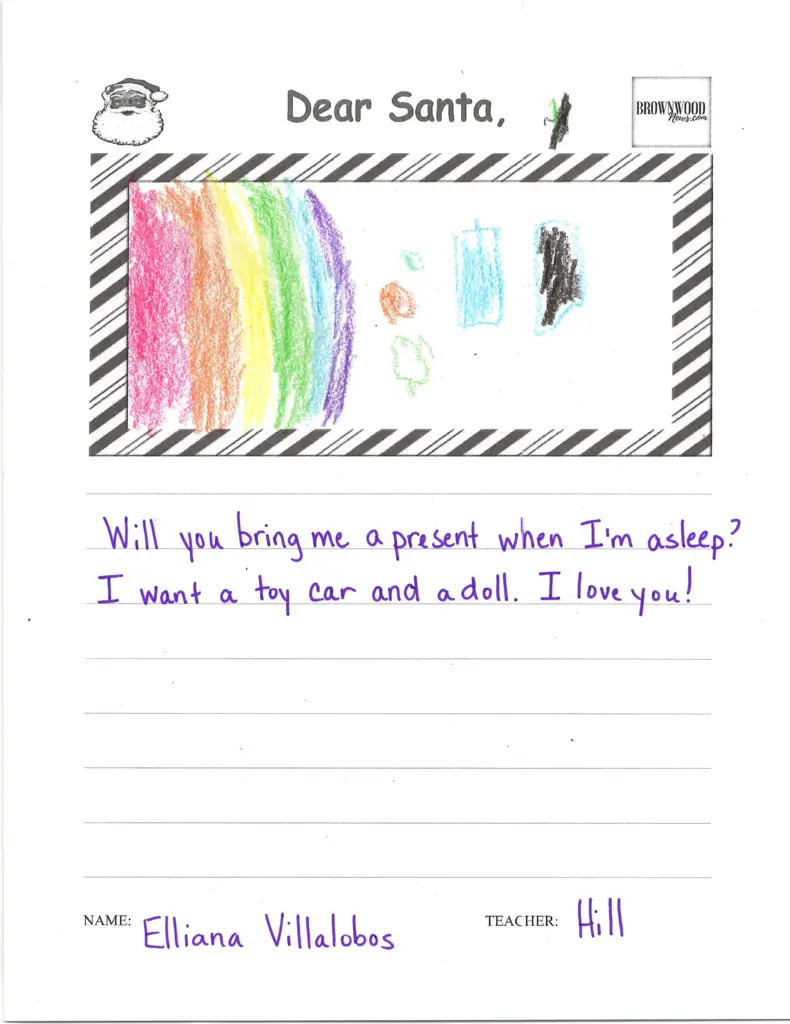 Dear Santa,
BROWNWOOD
News.com
Will you bring me a present when I'm asleep?
I want a toy car and a doll. I love you!
NAME: Elliana Villalobos
TEACHER: Hill